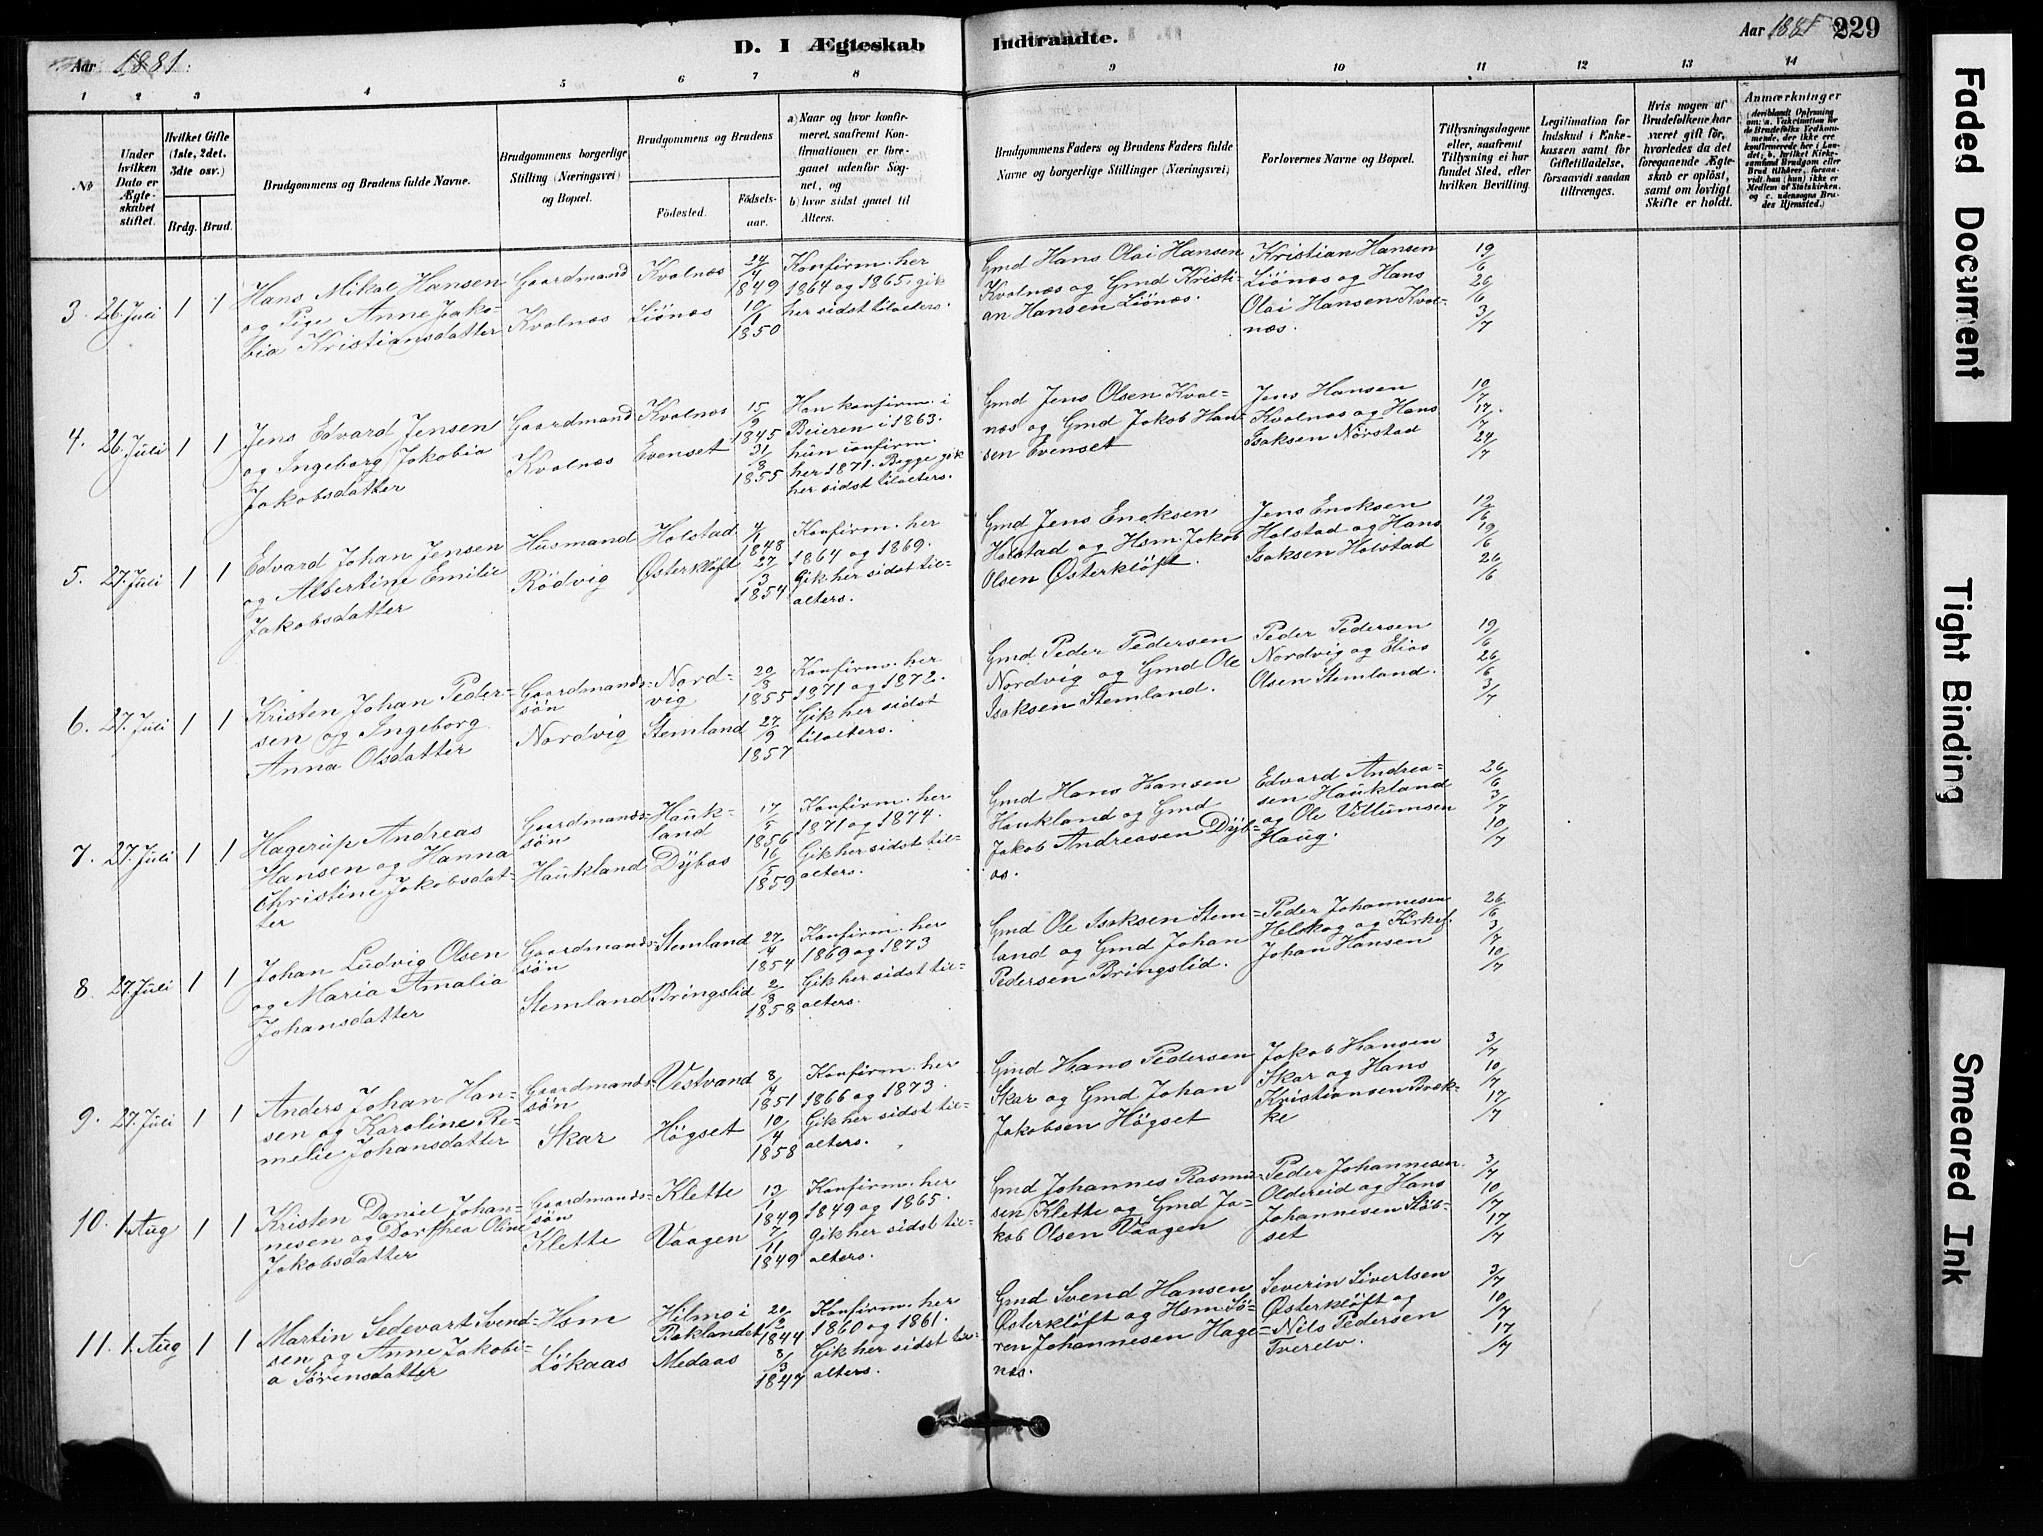 Aar 1881.
D. I Ægteskab Indtraadte.
Aar 1881
229
1 2 3 4 5 6 7 8 9 10 11 12 13 14
No
Under hvilken Dato er Ægteskabet stiftet.
Hvilket Gifte (1ste, 2det, 3die osv.)
Brdg. Brud.
Brudgommens og Brudens fulde Navne.
Brudgommens borgerlige Stilling (Næringsvei) og Bopæl.
Brudgommens og Brudens
Födested.
Födselsaar.
a) Naar og hvor konfirmeret, saafremt Konfirmationen er foregaaet udenfor Sognet, og
b) hvor sidst gaaet til Alters.
Brudgommens Faders og Brudens Faders fulde Navne og borgerlige Stillinger (Næringsvei)
Forlovernes Navne og Bopæl.
Tillysningsdagene eller, saafremt Tillysning ei har fundet Sted, efter hvilken Bevilling.
Legitimation for Indskud i Enkekassen samt for Giftetilladelse, forsaavidt saadan tiltrænges.
Hvis nogen af Brudefolkene har været gift för, hvorledes da det foregaaende Ægteskab er oplöst, samt om lovligt Skifte er holdt.
Anmærkninger
3. 26 Juli 1 1
Hans Mikal Hansen
og Pige Anne Jako-
bia Kristiansdatter
Gaardmand
Kvalnæs
Kvalnæs
Liönæs
24/4 1849
10/1 1850
Konfirm. her
1864 og 1865, gik
her sidst tilalters.
Gmd Hans Olai Hansen
Kvalnæs og Gmd Kristi-
an Hansen Liönæs.
Kristian Hansen
Liönæs og Hans
Olai Hansen Kval-
næs.
19/6
26/6
3/7
4. 26 Juli 1 1
Jens Edvard Jensen
og Ingeborg Jakobia
Jakobsdatter
Gaardmand
Kvalnæs
Kvalnæs
Evenset
15/9 1845
31/8 1855
Han konfirm. i
Beieren i 1863.
hun confirm.
her 1871. Begge gik
her sidst tilalters.
Gmd Jens Olsen Kval-
næs og Gmd Jakob Han-
sen Evenset
Jens Hansen
Kvalnæs og Hans
Isaksen Nörstad
10/7
17/7
24/7
5. 27. Juli 1 1
Edvard Johan Jensen
og Albertine Emilie
Jakobsdatter
Husmand
Rödvig
Holstad
Østerklöft
4/1 1848
27/3 1854
Konfirm. her
1864 og 1869.
Gik her sidst til-
alters.
Gmd Jens Enoksen
Holstad og Hsm. Jakob
Olsen Østerklöft.
Jens Enoksen
Holstad og Hans
Isaksen Holstad
12/6
19/6
26/6
6. 27. Juli 1 1
Kristen Johan Peder-
sen og Ingeborg
Anna Olsdatter
Gaardmands-
sön
Nordvig
Nord-
vig
Stemland
20/8 1855
27/9 1857
Konfirm. her
1871 og 1872.
Gik her sidst
tilalters.
Gmd Peder Pedersen
Nordvig og Gmd Ole
Isaksen Stemland.
Peder Pedersen
Nordvig og Elias
Olsen Stemland.
19/6
26/6
3/7
7. 27. Juli 1 1
Hagerup Andreas
Hansen og Hanna
Christine Jakobsdat-
ter
Gaardmands-
sön
Haukland
Hauk-
land
Dybos
17/5 1856
16/5 1859
Konfirm. her
1871 og 1874.
Gik her sidst til-
alters.
Gmd Hans Hansen
Haukland og Gmd
Jakob Andreasen Dyb-
os.
Edvard Andrea-
sen Haukland
og Ole Villumsen
Haug.
26/6
3/7
10/7
8. 27. Juli 1 1
Johan Ludvig Olsen
og Maria Amalia
Johansdatter
Gaardmands-
sön
Stemland
Stemland
Bringslid
27/4 1854
2/8 1858
Konfirm. her
1869 og 1873
Gik her sidst til-
alters.
Gmd Ole Isaksen Stem-
land og Gmd Johan
Pedersen Bringslid.
Peder Johannesen
Helskog og Kirkes.
Johan Hansen
26/6
3/7
10/7
9. 27. Juli 1 1
Anders Johan Han-
sen og Karoline Pe-
melie Johansdatter
Gaardmands-
sön
Skar
Vestvand
Högset
8/4 1851
10/4 1858
Konfirm. her
1866 og 1873.
Gik her sidst til-
alters.
Gmd Hans Pedersen
Skar og Gmd Johan
Jakobsen Högset
Jakob Hansen
Skar og Hans
Kristiansen Bræk-
ke
3/7
10/7
17/7
10. 1. Aug 1 1
Kristen Daniel Johan-
nesen og Dorthea Oline
Jakobsdatter
Gaardmands-
sön
Klette
Klette
Vaagen
13/1 1849
7/11 1849
Konfirm. her
1849 og 1865.
Gik her sidst til-
alters.
Gmd Johannes Rasmu-
sen Klette og Gmd Ja-
kob Olsen Vaagen
Peder Johannesen
Oldereid og Hans
Johannesen Stöb-
set
3/7
10/7
17/7
11. 1. Aug 1 1
Martin Sedevart Svend-
sen og Anne Jakobi-
a Sörensdatter
Hsm
Lökaas
Hilmo i
Røklandet
Medaas
20/2 1844
8/3 1847
Konfirm. her
1860 og 1861.
Gik her sidst til-
alters.
Gmd Svend Hansen
Østerklöft og Hsm Sö-
ren Johannesen Hage-
næs.
Severin Sivertsen
Østerklöft og
Nils Pedersen
Tverelv.
3/7
10/7
17/7
Faded Document
Tight Binding
Smeared Ink